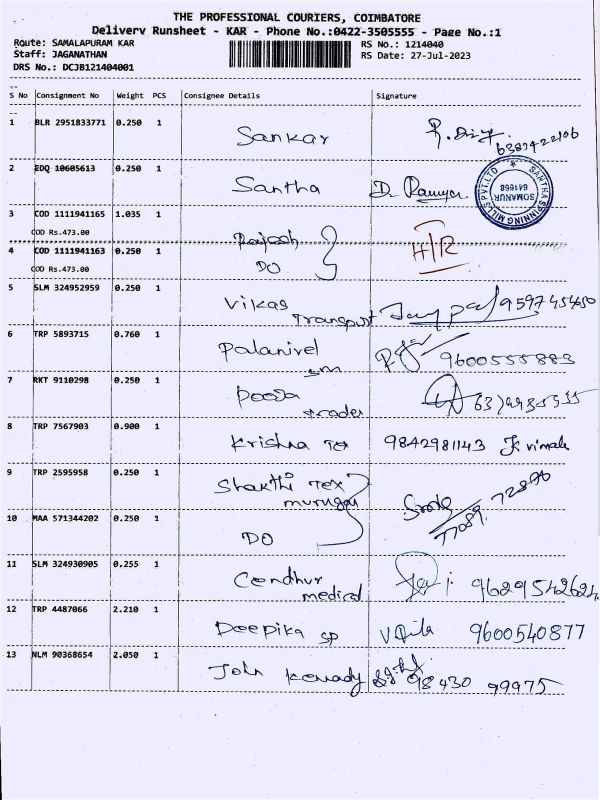 THE PROFESSIONAL COURIERS, COIMBATORE
Delivery Runsheet - KAR - Phone No.:0422-3505555 - Page No.:1
Route: SAMALAPURAM KAR RS No.: 1214040
Staff: JAGANATHAN RS Date: 27-Jul-2023
DRS No.: DCJB121404001
S No Consignment No Weight PCS Consignee Details Signature
1 BLR 2951833771 0.250 1 Sankar
2 EDQ 10605613 0.250 1 Santha D. Ramya
SANTHA SPINNING MILLS PVT.LTD
SOMANUR
641668
3 COD 1111941165 1.035 1 Rajesh H/R
COD Rs.473.00
4 COD 1111941163 0.250 1 DO
COD Rs.473.00
5 SLM 324952959 0.250 1 Vikas Transport
6 TRP 5893715 0.760 1 Palanivel 9600555883
7 RKT 9110298 0.250 1 pooja traders
8 TRP 7567903 0.900 1 Krishna Tex 9842981143
9 TRP 2595958 0.250 1 Shakthi Tex murugan
10 MAA 571344202 0.250 1 DO
11 SLM 324930905 0.255 1 Cendhur medical 9629542624
12 TRP 4487066 2.210 1 Deepika sp 9600540877
13 NLM 90368654 2.050 1 John kennady 98430 99975